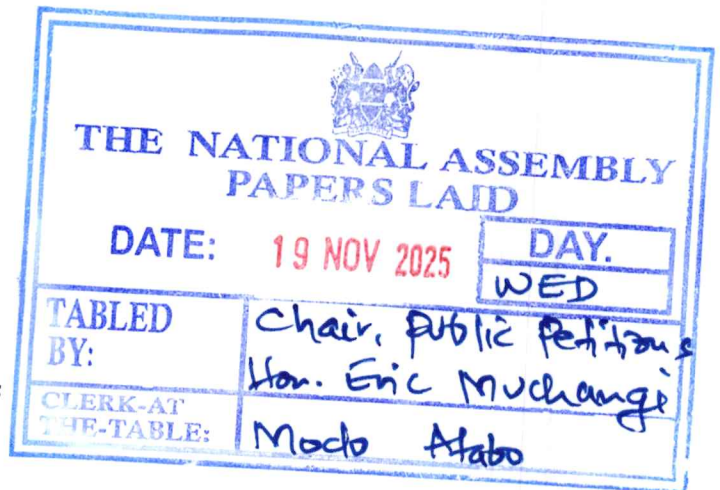 THE NATIONAL ASSEMBLY
PAPERS LAID
DATE: 19 NOV 2025
DAY.
WED
TABLED BY:
Chair, Public Petitions
Hon. Eric Muchangi
CLERK-AT THE-TABLE:
Modo Atabo